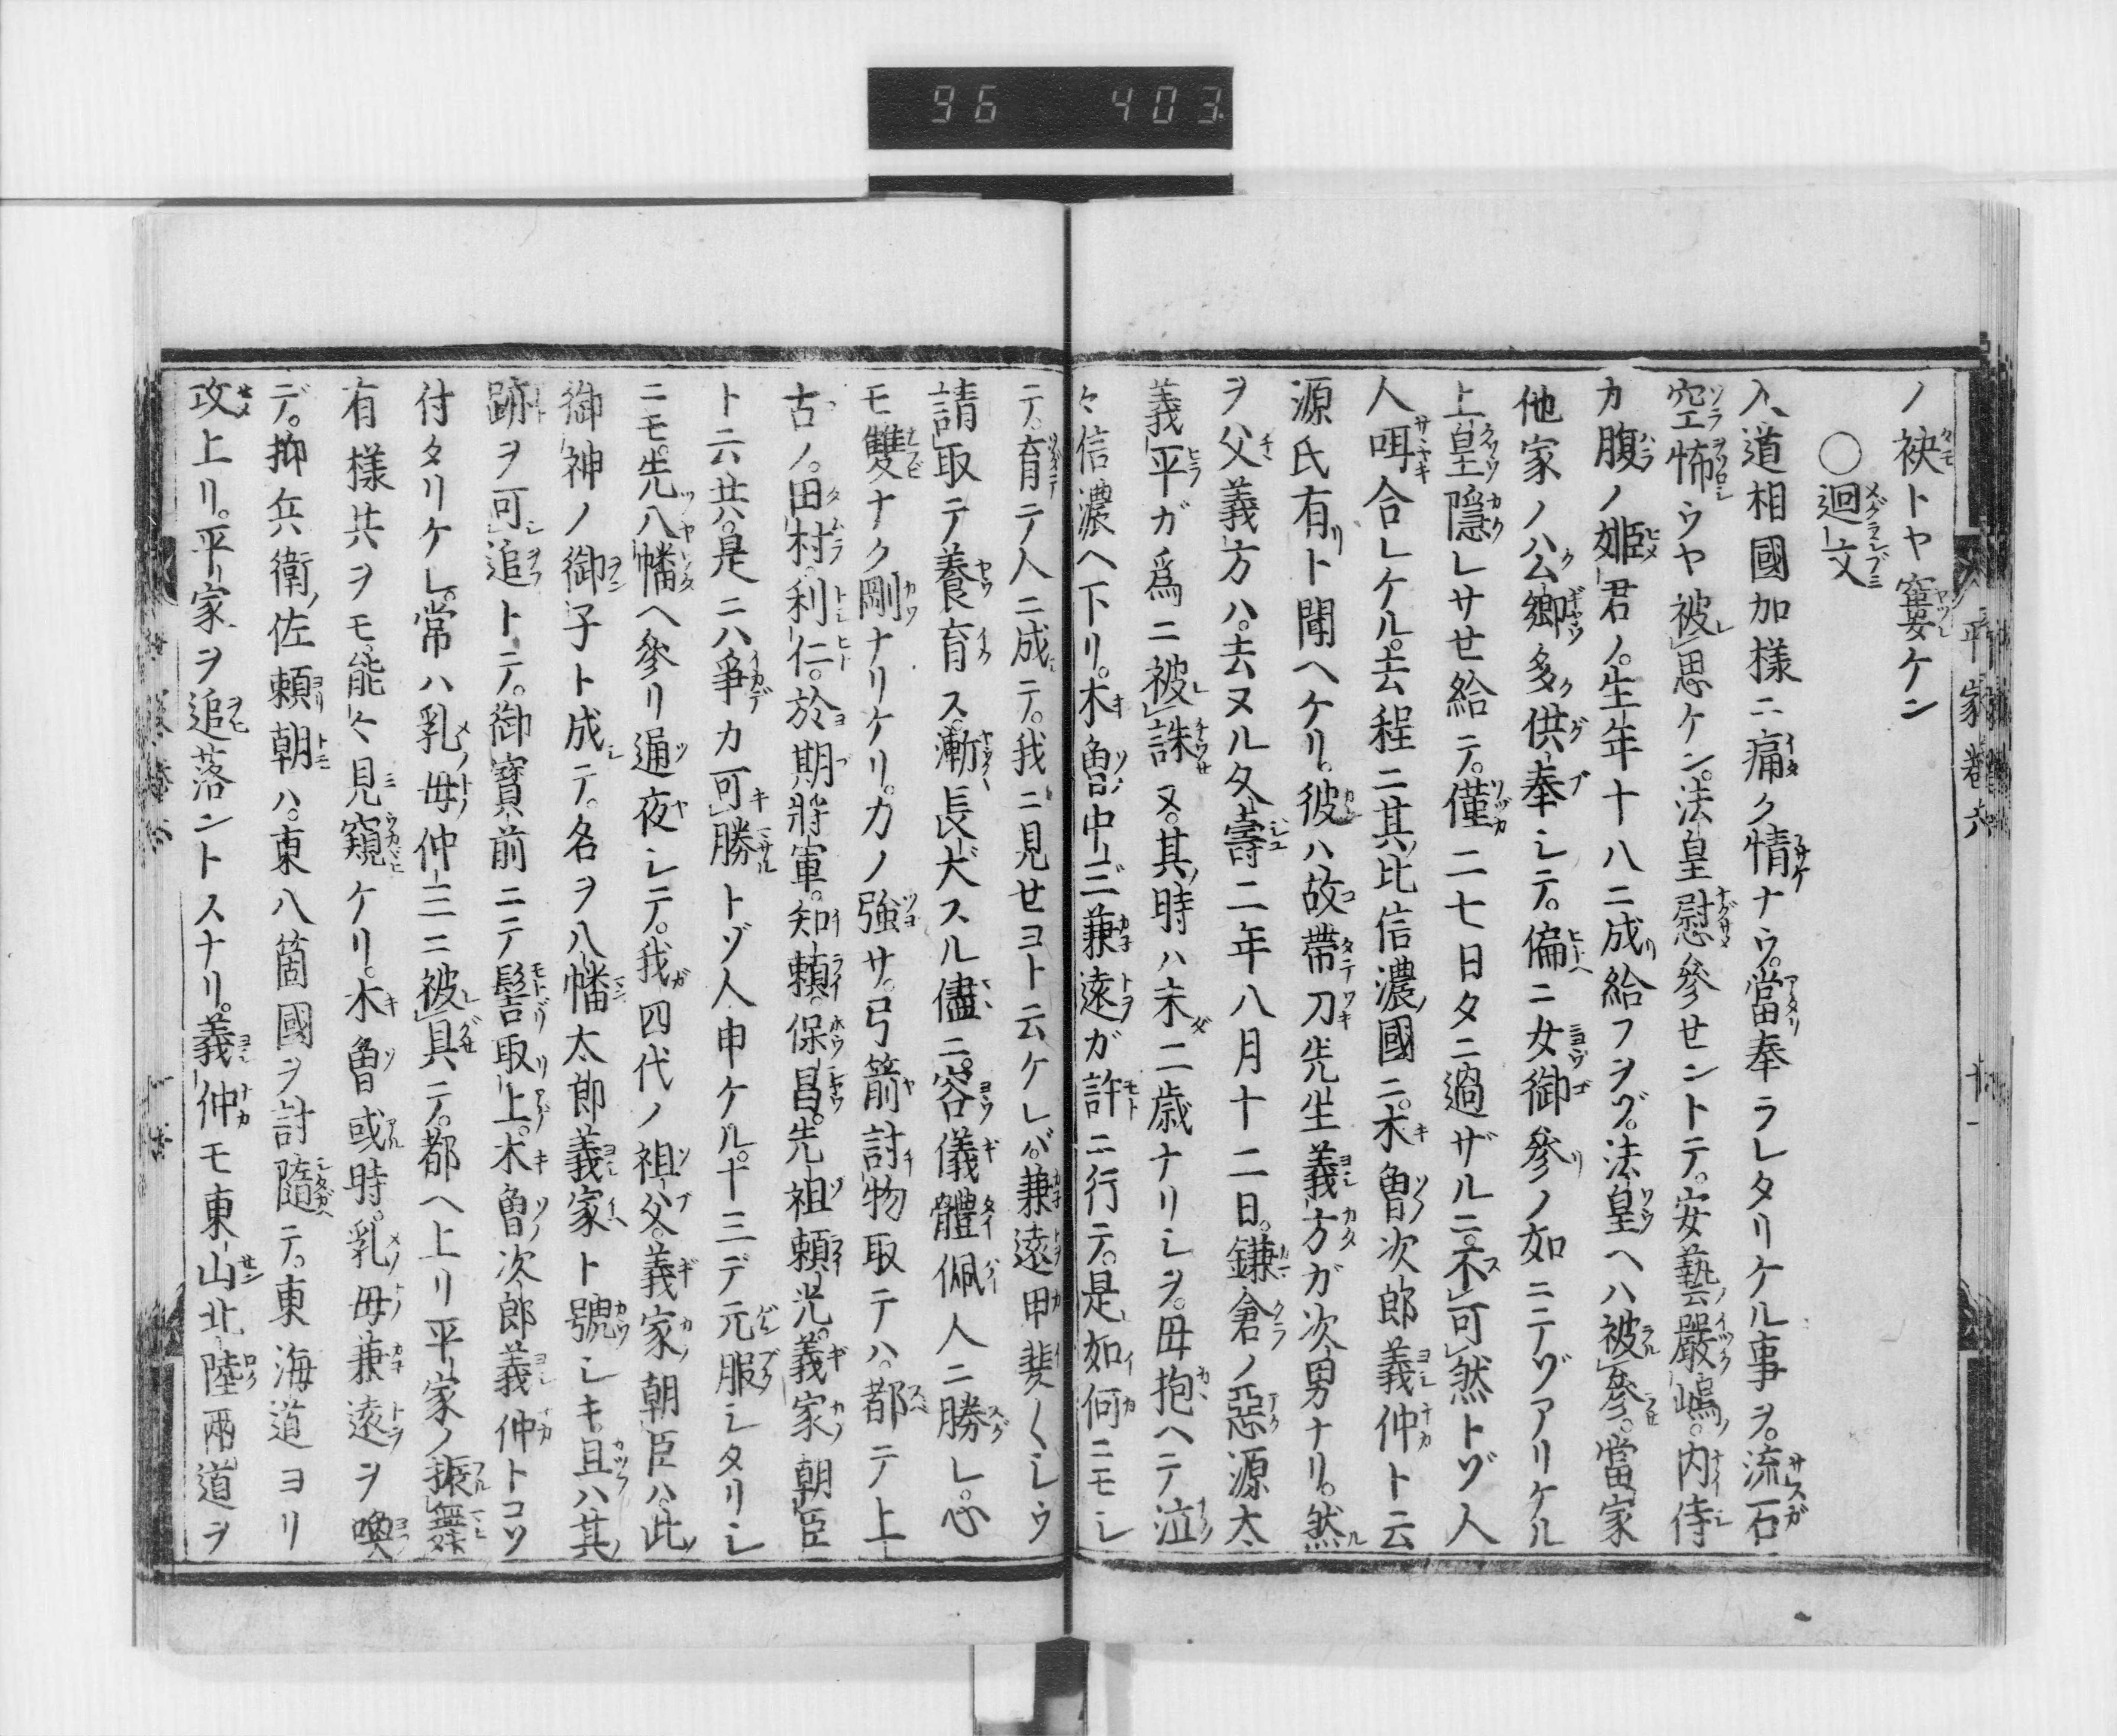 96 403
平家巻六 十一
ノ袂トヤ窶ケン
○迴文
入道相國加樣ニ痛ク情ナウ。當奉ラレタリケル事ヲ。流石
空怖ウヤ被思ケン。法皇慰參セントテ。安藝嚴嶋。内侍
カ腹ノ姫君ノ。生年十八ニ成給フヲゾ。法皇ヘハ被參。當家
他家ノ公卿多供奉シテ。偏ニ女御參ノ如ニテゾアリケル
上皇隱レサせ給テ。僅二七日タニ過ザルニ。不可然トゾ人
人咡合レケル。去程ニ其比信濃國ニ。木曾次郎義仲ト云
源氏有ト聞ヘケリ。彼ハ故帶刀先生義方ガ次男ナリ。然
ヲ父義方ハ。去ヌル久壽二年八月十二日。鎌倉ノ惡源太
義平ガ爲ニ被誅ヌ。其時ハ未二歳ナリシヲ。母抱ヘテ泣
々信濃ヘ下リ。木曾中三兼遠ガ許ニ行テ。是如何ニモシ
テ。育テ人ニ成テ。我ニ見せヨト云ケレバ。兼遠甲斐〱シウ
請取テ養育ス。漸長大スル儘ニ。容儀體佩人ニ勝レ。心
モ雙ナク剛ナリケリ。力ノ強サ。弓箭討物取テハ。都テ上
古ノ。田村。利仁。於期將軍。知頼。保昌。先祖頼光。義家朝臣
ト云共。是ニハ爭カ可勝トゾ人申ケル。十三デ元服シタリシ
ニモ。先八幡ヘ參リ通夜シテ。我四代ノ祖父。義家朝臣ハ。此
御神ノ御子ト成テ。名ヲ八幡太郎義家ト號シキ。且ハ其
跡ヲ可追トテ。御寶前ニテ髻取上。木曾次郎義仲トコソ
付タリケレ。常ハ乳母仲三ニ被具テ。都ヘ上リ平家ノ振舞
有樣共ヲモ。能々見窺ケリ。木曾或時。乳母兼遠ヲ喚
デ。抑兵衛佐頼朝ハ。東八箇國ヲ討隨テ。東海道ヨリ
攻上リ。平家ヲ追落ントスナリ。義仲モ東山北陸兩道ヲ